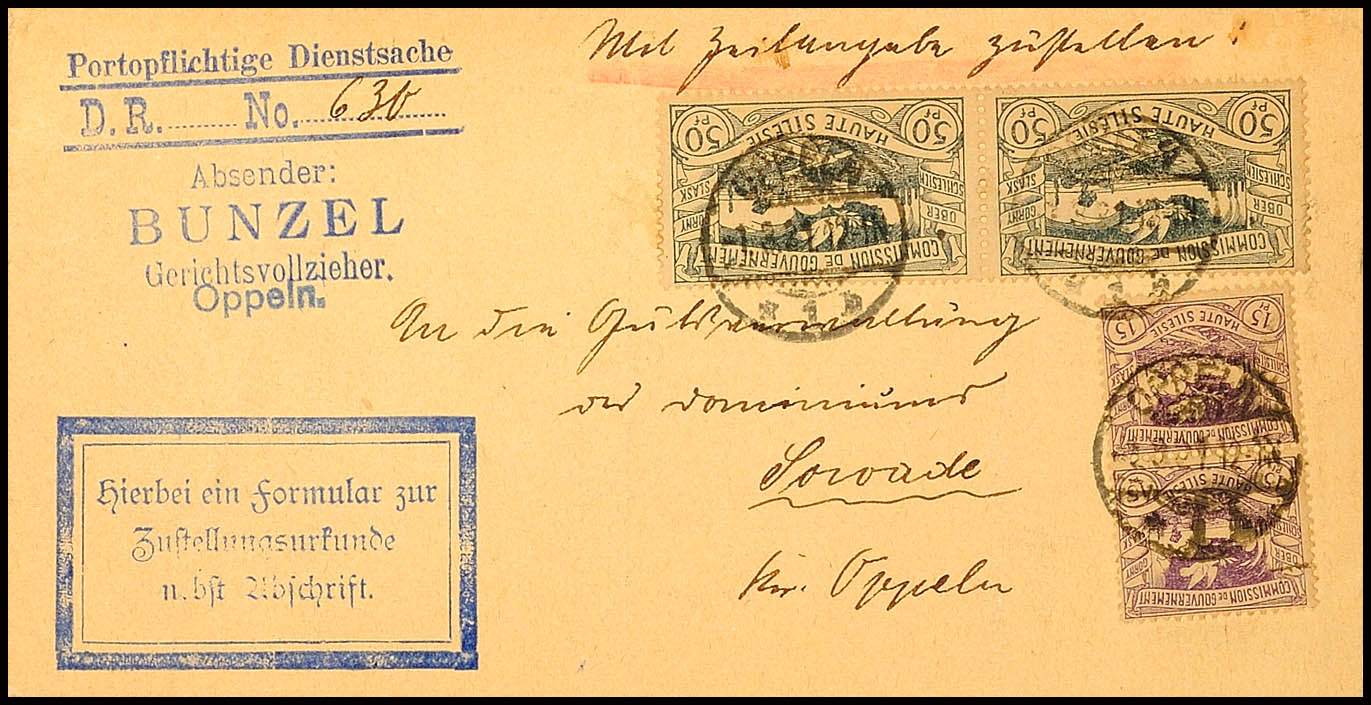 Portopflichtige Dienstsache
D. R. ........ No. 630
Absender:
BUNZEL
Gerichtsvollzieher.
Oppeln.
Mit Zeitangabe zustellen!
50 Pf HAUTE SILESIE 50 Pf
OBER SCHLESIEN
GÓRNY ŚLĄSK
COMMISSION DE GOUVERNEMENT
50 Pf HAUTE SILESIE 50 Pf
OBER SCHLESIEN
GÓRNY ŚLĄSK
COMMISSION DE GOUVERNEMENT
An die Gutsverwaltung
des Dominiums
Sowade
Kr. Oppeln
15 Pf HAUTE SILESIE 15 Pf
OBER SCHLESIEN
GÓRNY ŚLĄSK
COMMISSION DE GOUVERNEMENT
OPPELN
15 HAUTE SILESIE 15 Pf
OBER SCHLESIEN
GÓRNY ŚLĄSK
COMMISSION DE GOUVERNEMENT
Hierbei ein Formular zur
Zustellungsurkunde
nebst Abschrift.